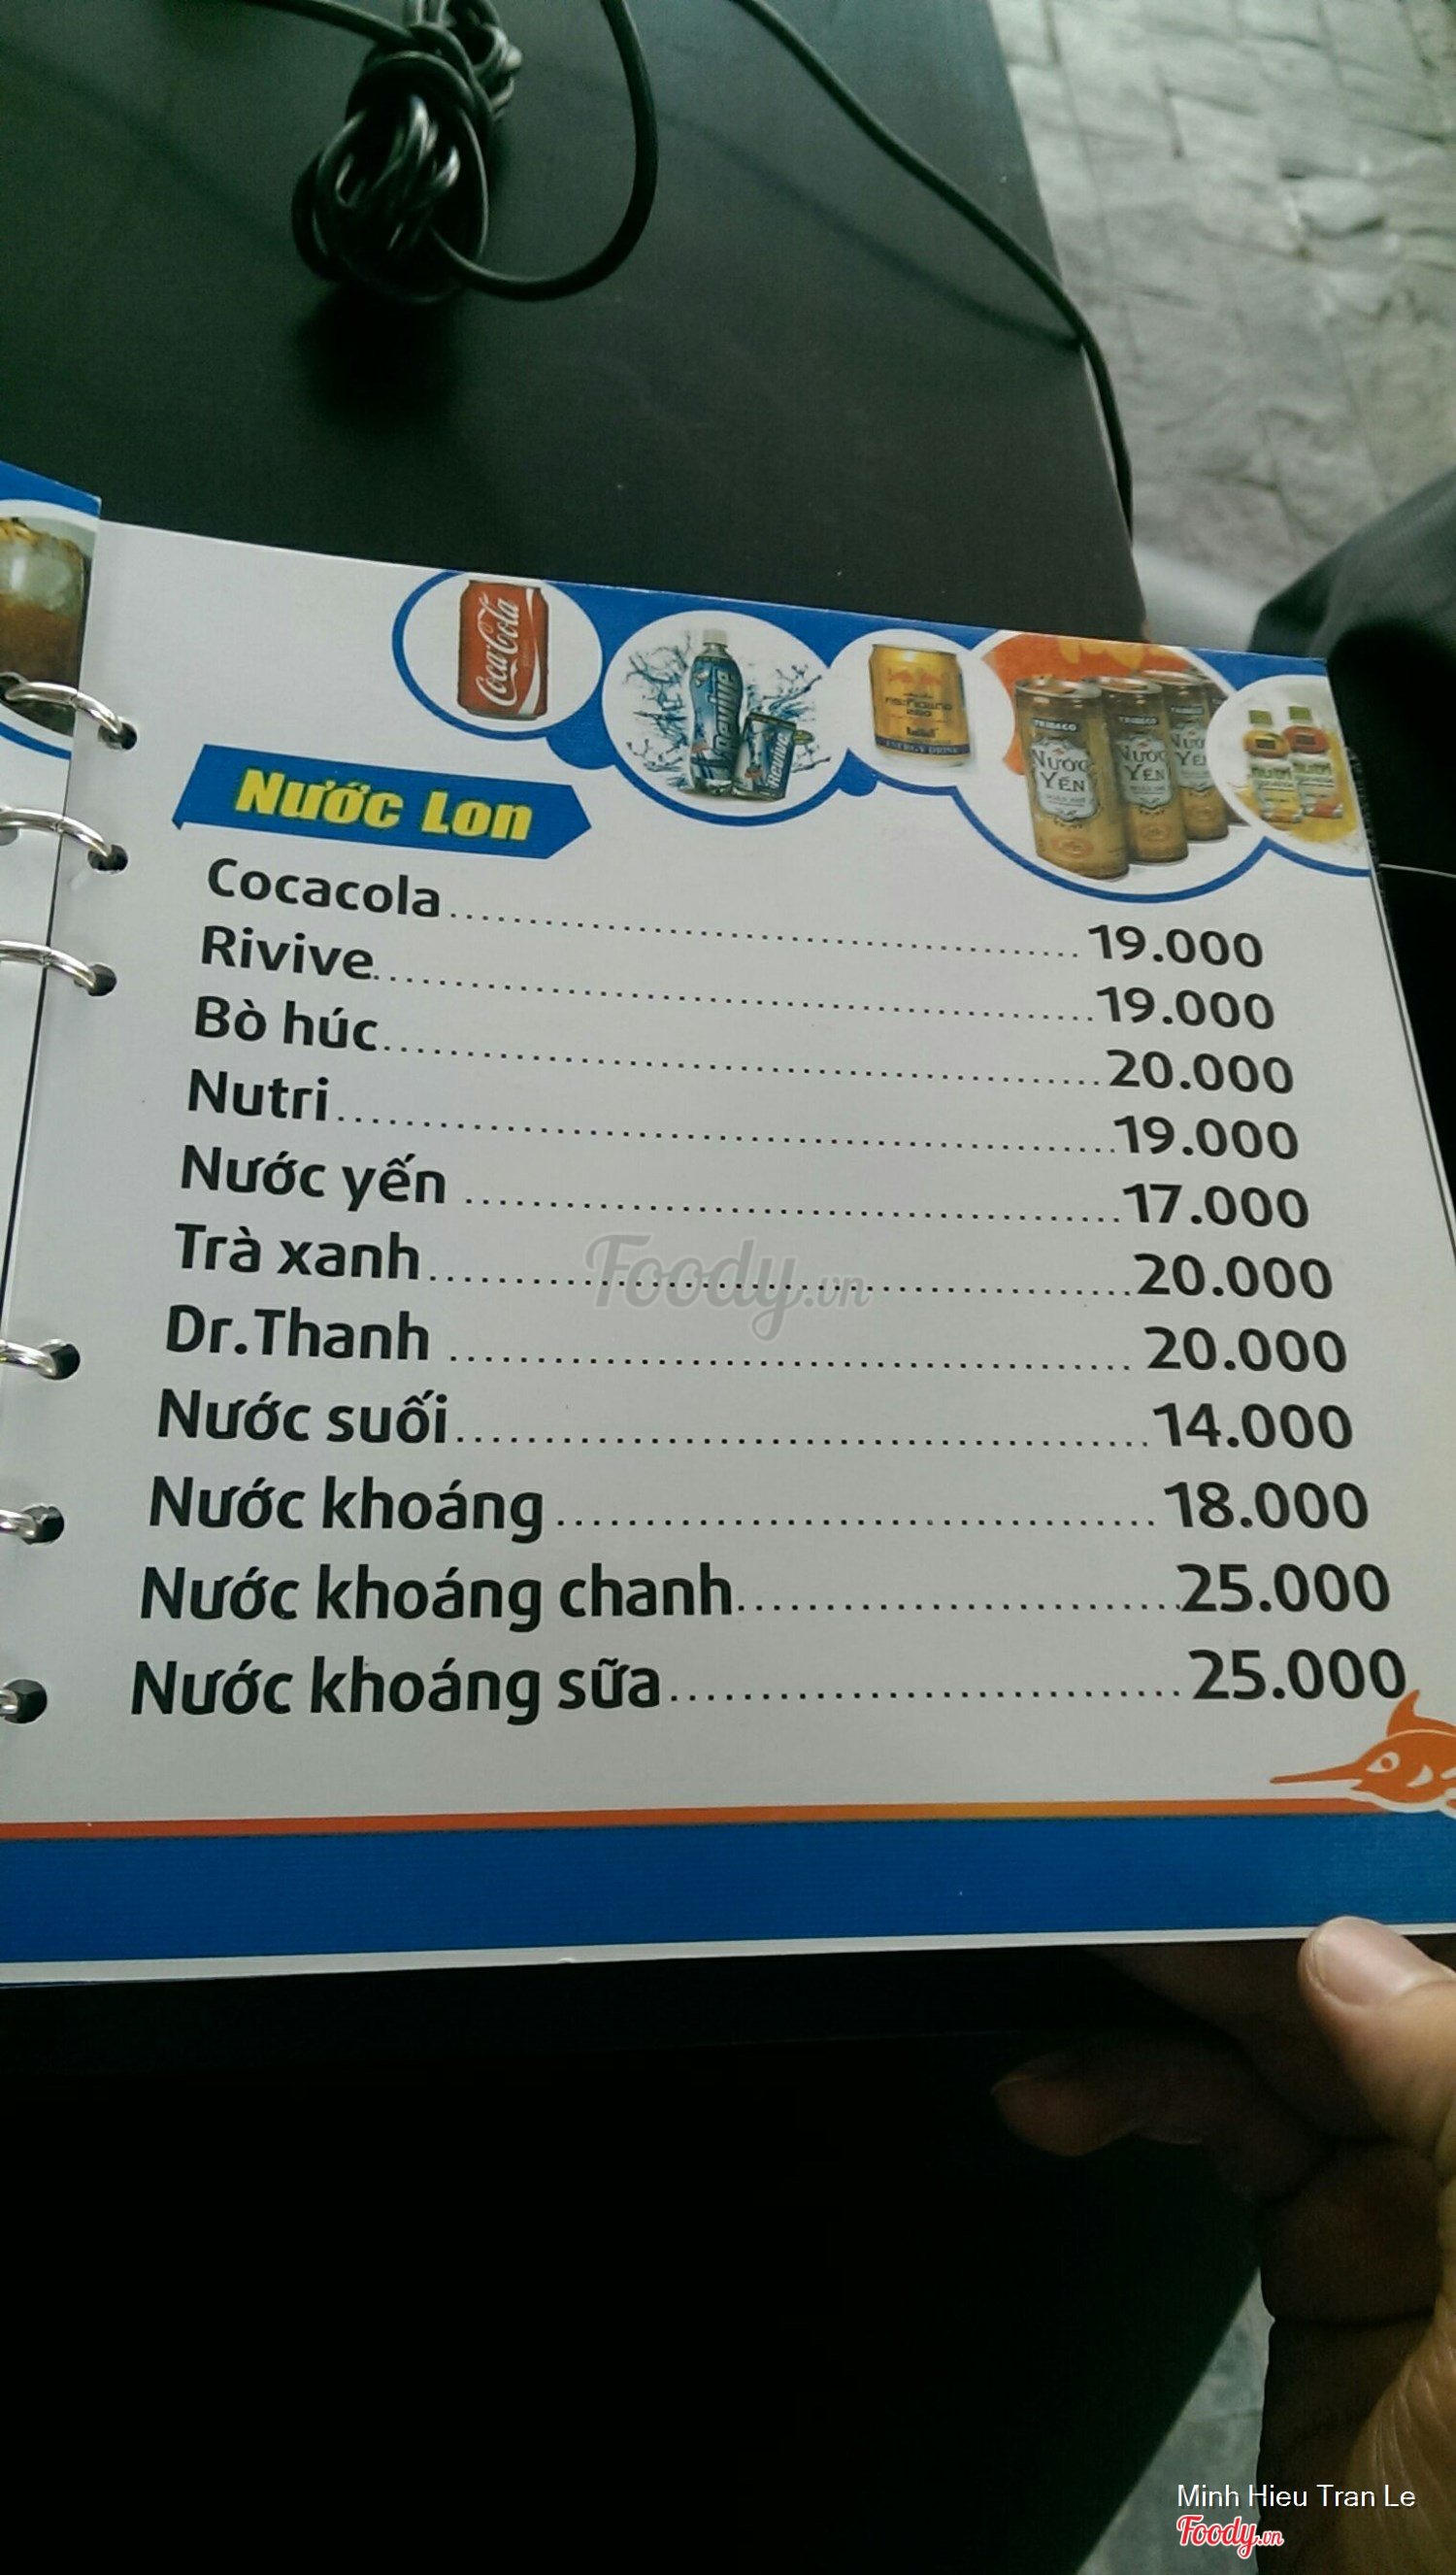 Coca-Cola
Revive
Revive
ENERGY DRINK
TRIBECO
NƯỚC YẾN
TRIBECO
NƯỚC YẾN
Nước Lon
Cocacola.................................... 19.000
Rivive.................................... 19.000
Bò húc.................................... 20.000
Nutri.................................... 19.000
Nước yến .................................... 17.000
Trà xanh.................................... 20.000
Dr.Thanh .................................... 20.000
Nước suối.................................... 14.000
Nước khoáng .................................... 18.000
Nước khoáng chanh.............................. 25.000
Nước khoáng sữa.............................. 25.000
Foody.vn
Minh Hieu Tran Le
Foody.vn